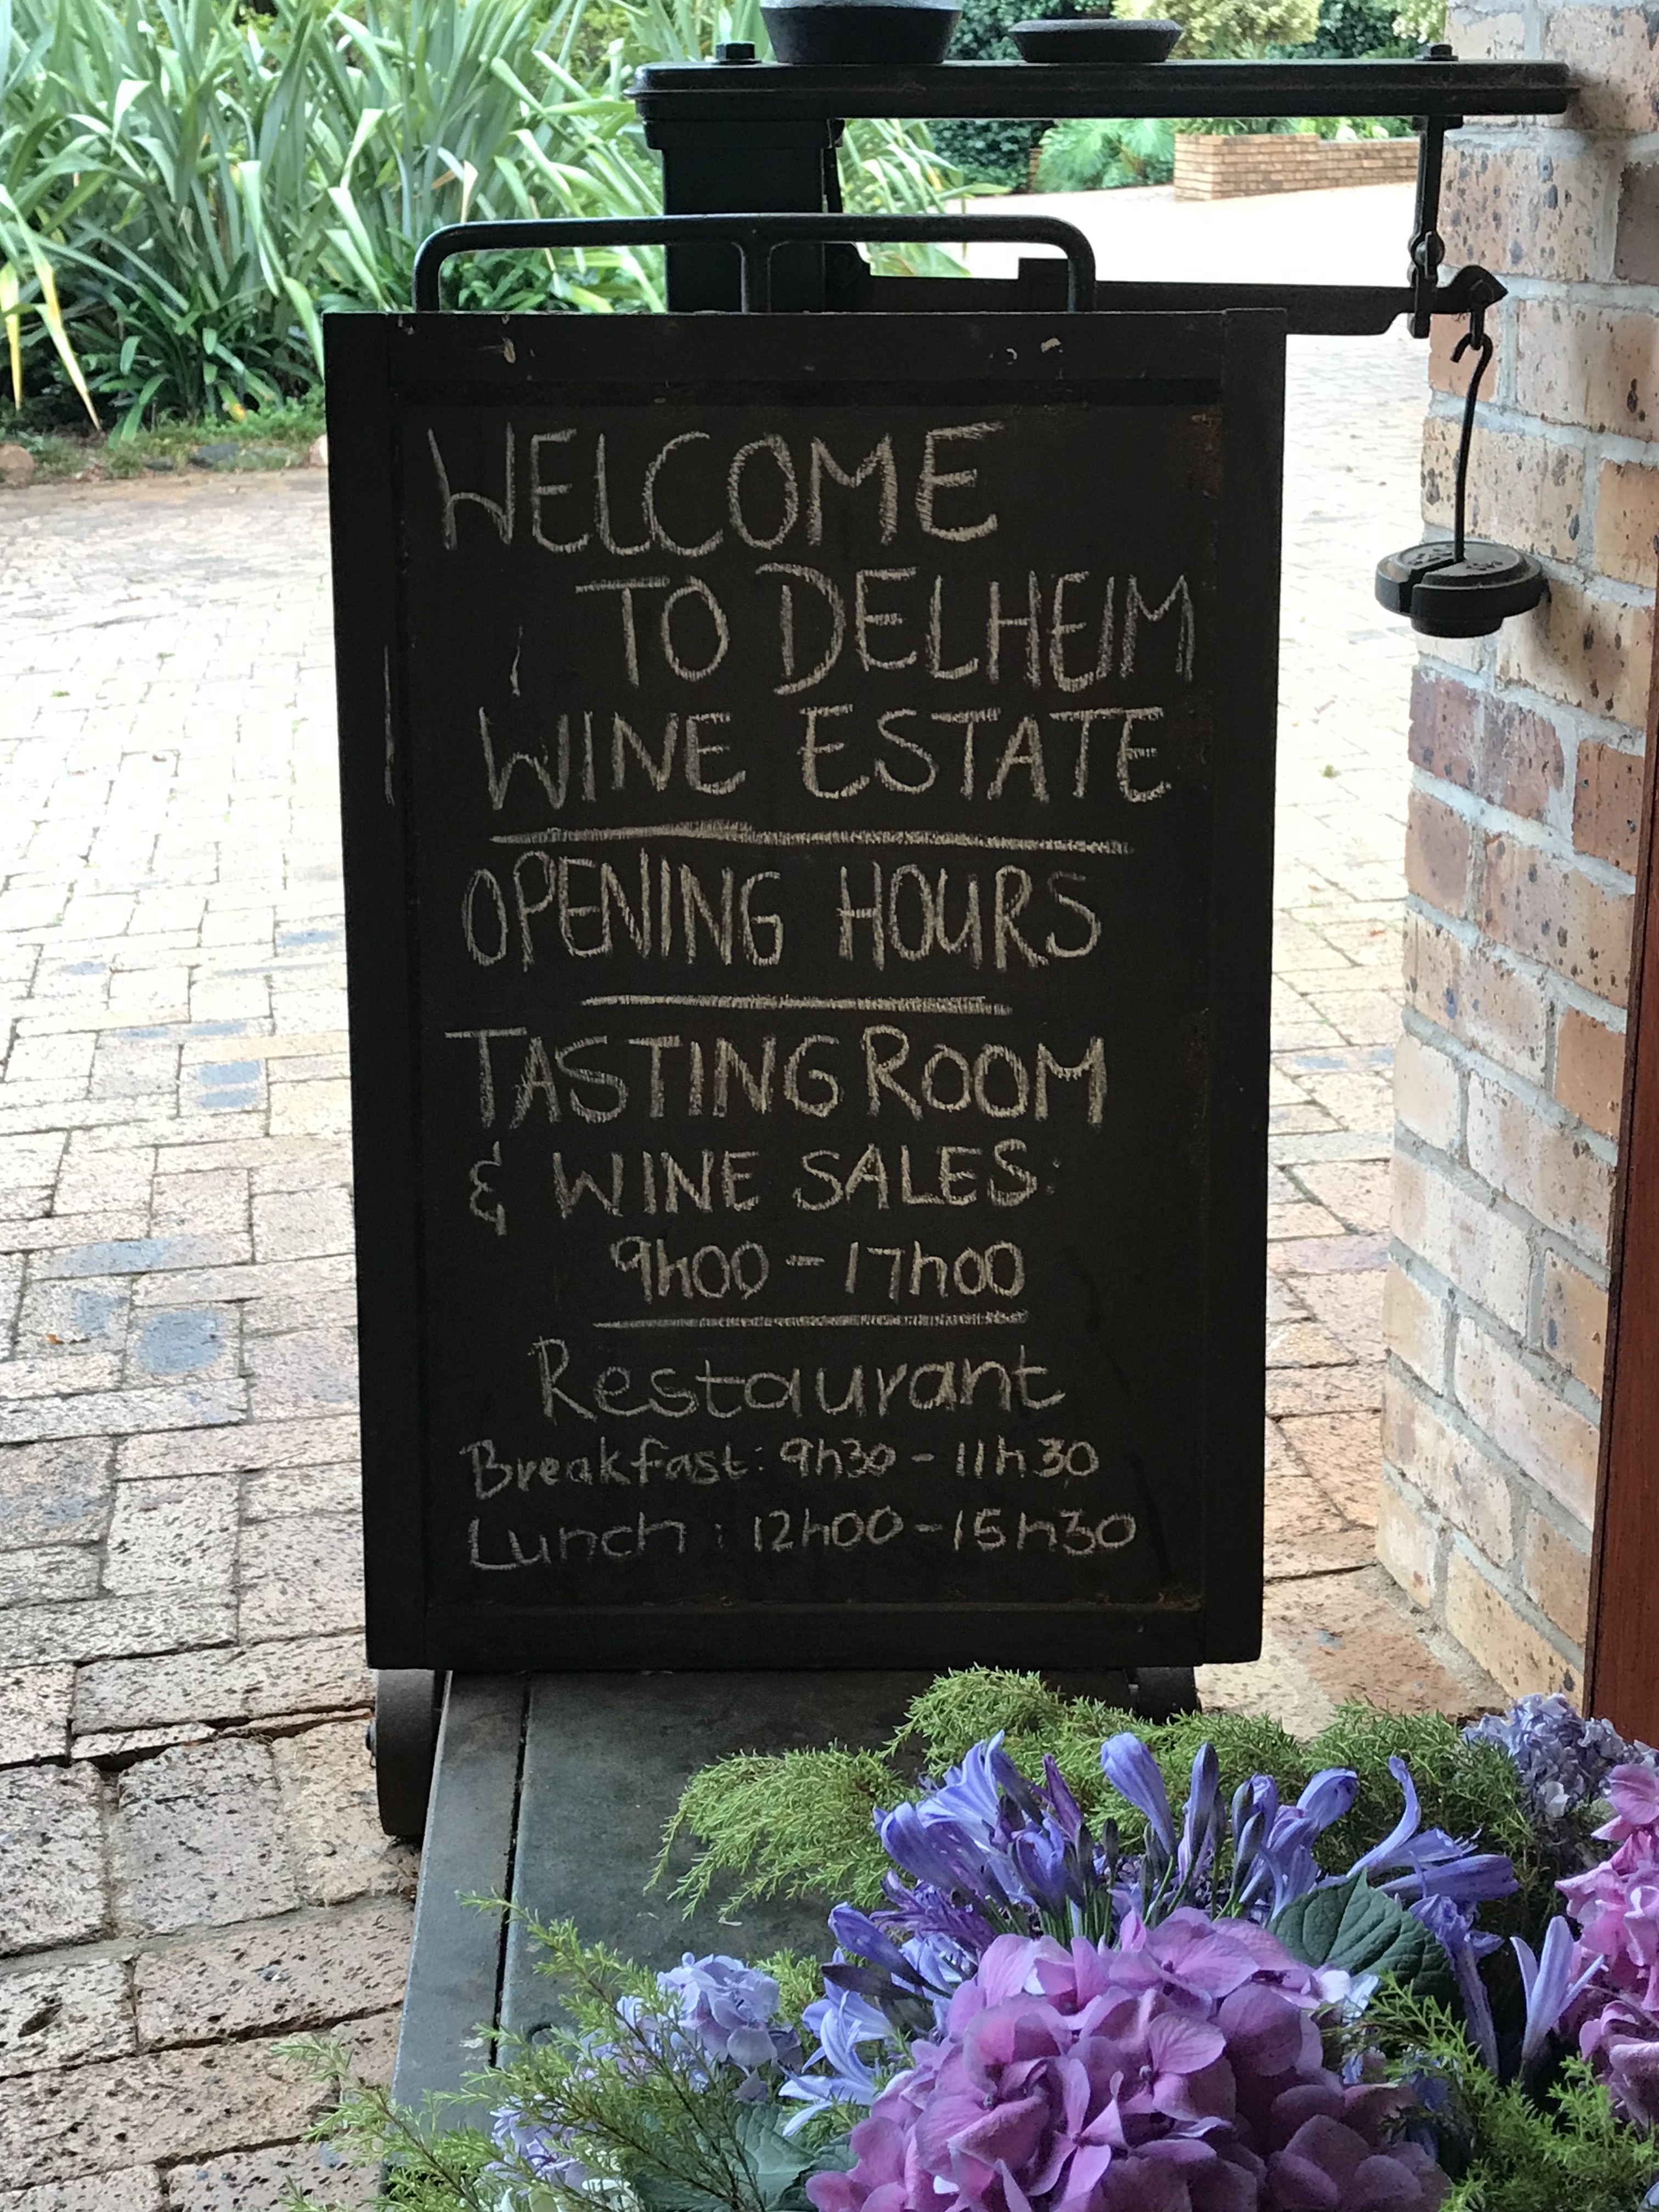 WELCOME
TO DELHEIM
WINE ESTATE
OPENING HOURS
TASTING ROOM
& WINE SALES:
9h00 - 17h00
Restaurant
Breakfast: 9h30 - 11h30
Lunch: 12h00 - 15h30